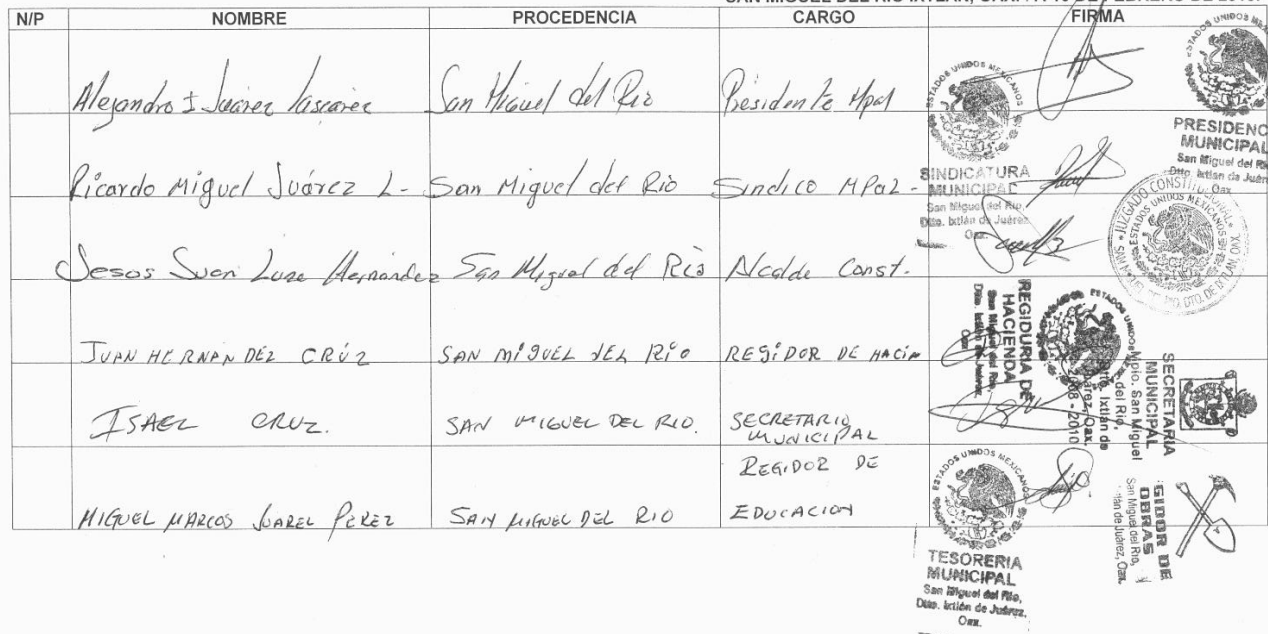 N/P NOMBRE PROCEDENCIA CARGO FIRMA
Alejandro I Juárez San Miguel del Rio Presidente Mpal
Ricardo Miguel Juárez L- San Miguel del Rio Sindico MPal-
Jesos Juan Luna Hernández San Miguel del Río Alcalde Const.
JUAN HERNÁNDEZ CRÚZ SAN MIGUEL DEL RÍO REGIDOR DE HACIN
ISAEL CRUZ. SAN MIGUEL DEL RIO. SECRETARIO
MUNICIPAL
REGIDOR DE
MIGUEL MARCOS JUAREZ PEREZ SAN MIGUEL DEL RIO EDUCACION
ESTADOS UNIDOS MEXICANOS
PRESIDENC
MUNICIPAL
San Miguel del Rio
Dtto. Ixtlan de Juár
Oax
ESTADOS UNIDOS MEXICANOS
SINDICATURA
MUNICIPAL
San Miguel del Rio,
Dtto. Ixtlán de Juárez
Oax.
JUZGADO CONSTITUCIONAL
ESTADOS UNIDOS MEXICANOS
ESTADOS UNIDOS
REGIDURIA DE
HACIENDA
San Miguel del Rio,
Dtto. Ixtlán de Juárez,
Oax
SECRETARIA
MUNICIPAL
Mpio. San Miguel
del Rio,
Dtto. Ixtlan de
Juárez, Oax.
2008 - 2010
ESTADOS UNIDOS MEXICANOS
TESORERIA
MUNICIPAL
San Miguel del Rio,
Dtto. Ixtlán de Juárez,
Oax.
GIDOR DE
OBRAS
San Miguel del Rio,
tlán de Juárez, Oax.